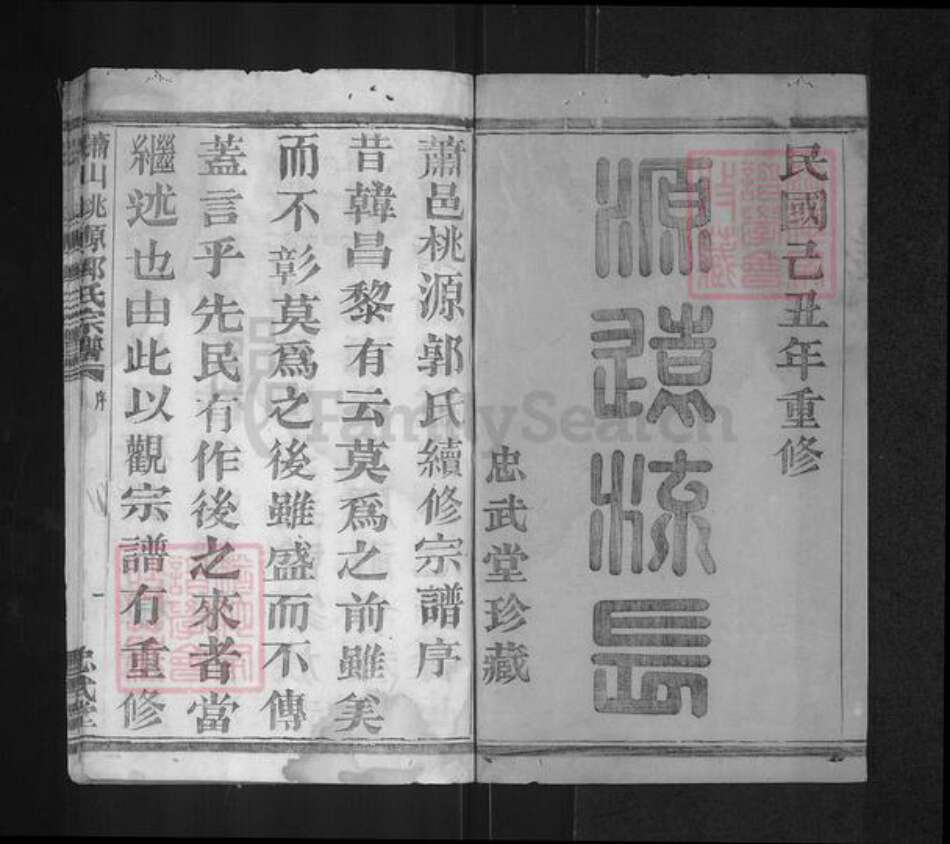 民國己丑年重修
源遠流長
忠武堂珍藏
蕭邑桃源郭氏續修宗譜序
昔韓昌黎有云莫爲之前雖美
而不彰莫爲之後雖盛而不傳
蓋言乎先民有作後之來者當
繼述也由此以觀宗譜有重修
蕭山桃源郭氏宗譜 序 一 忠武堂
FamilySearch